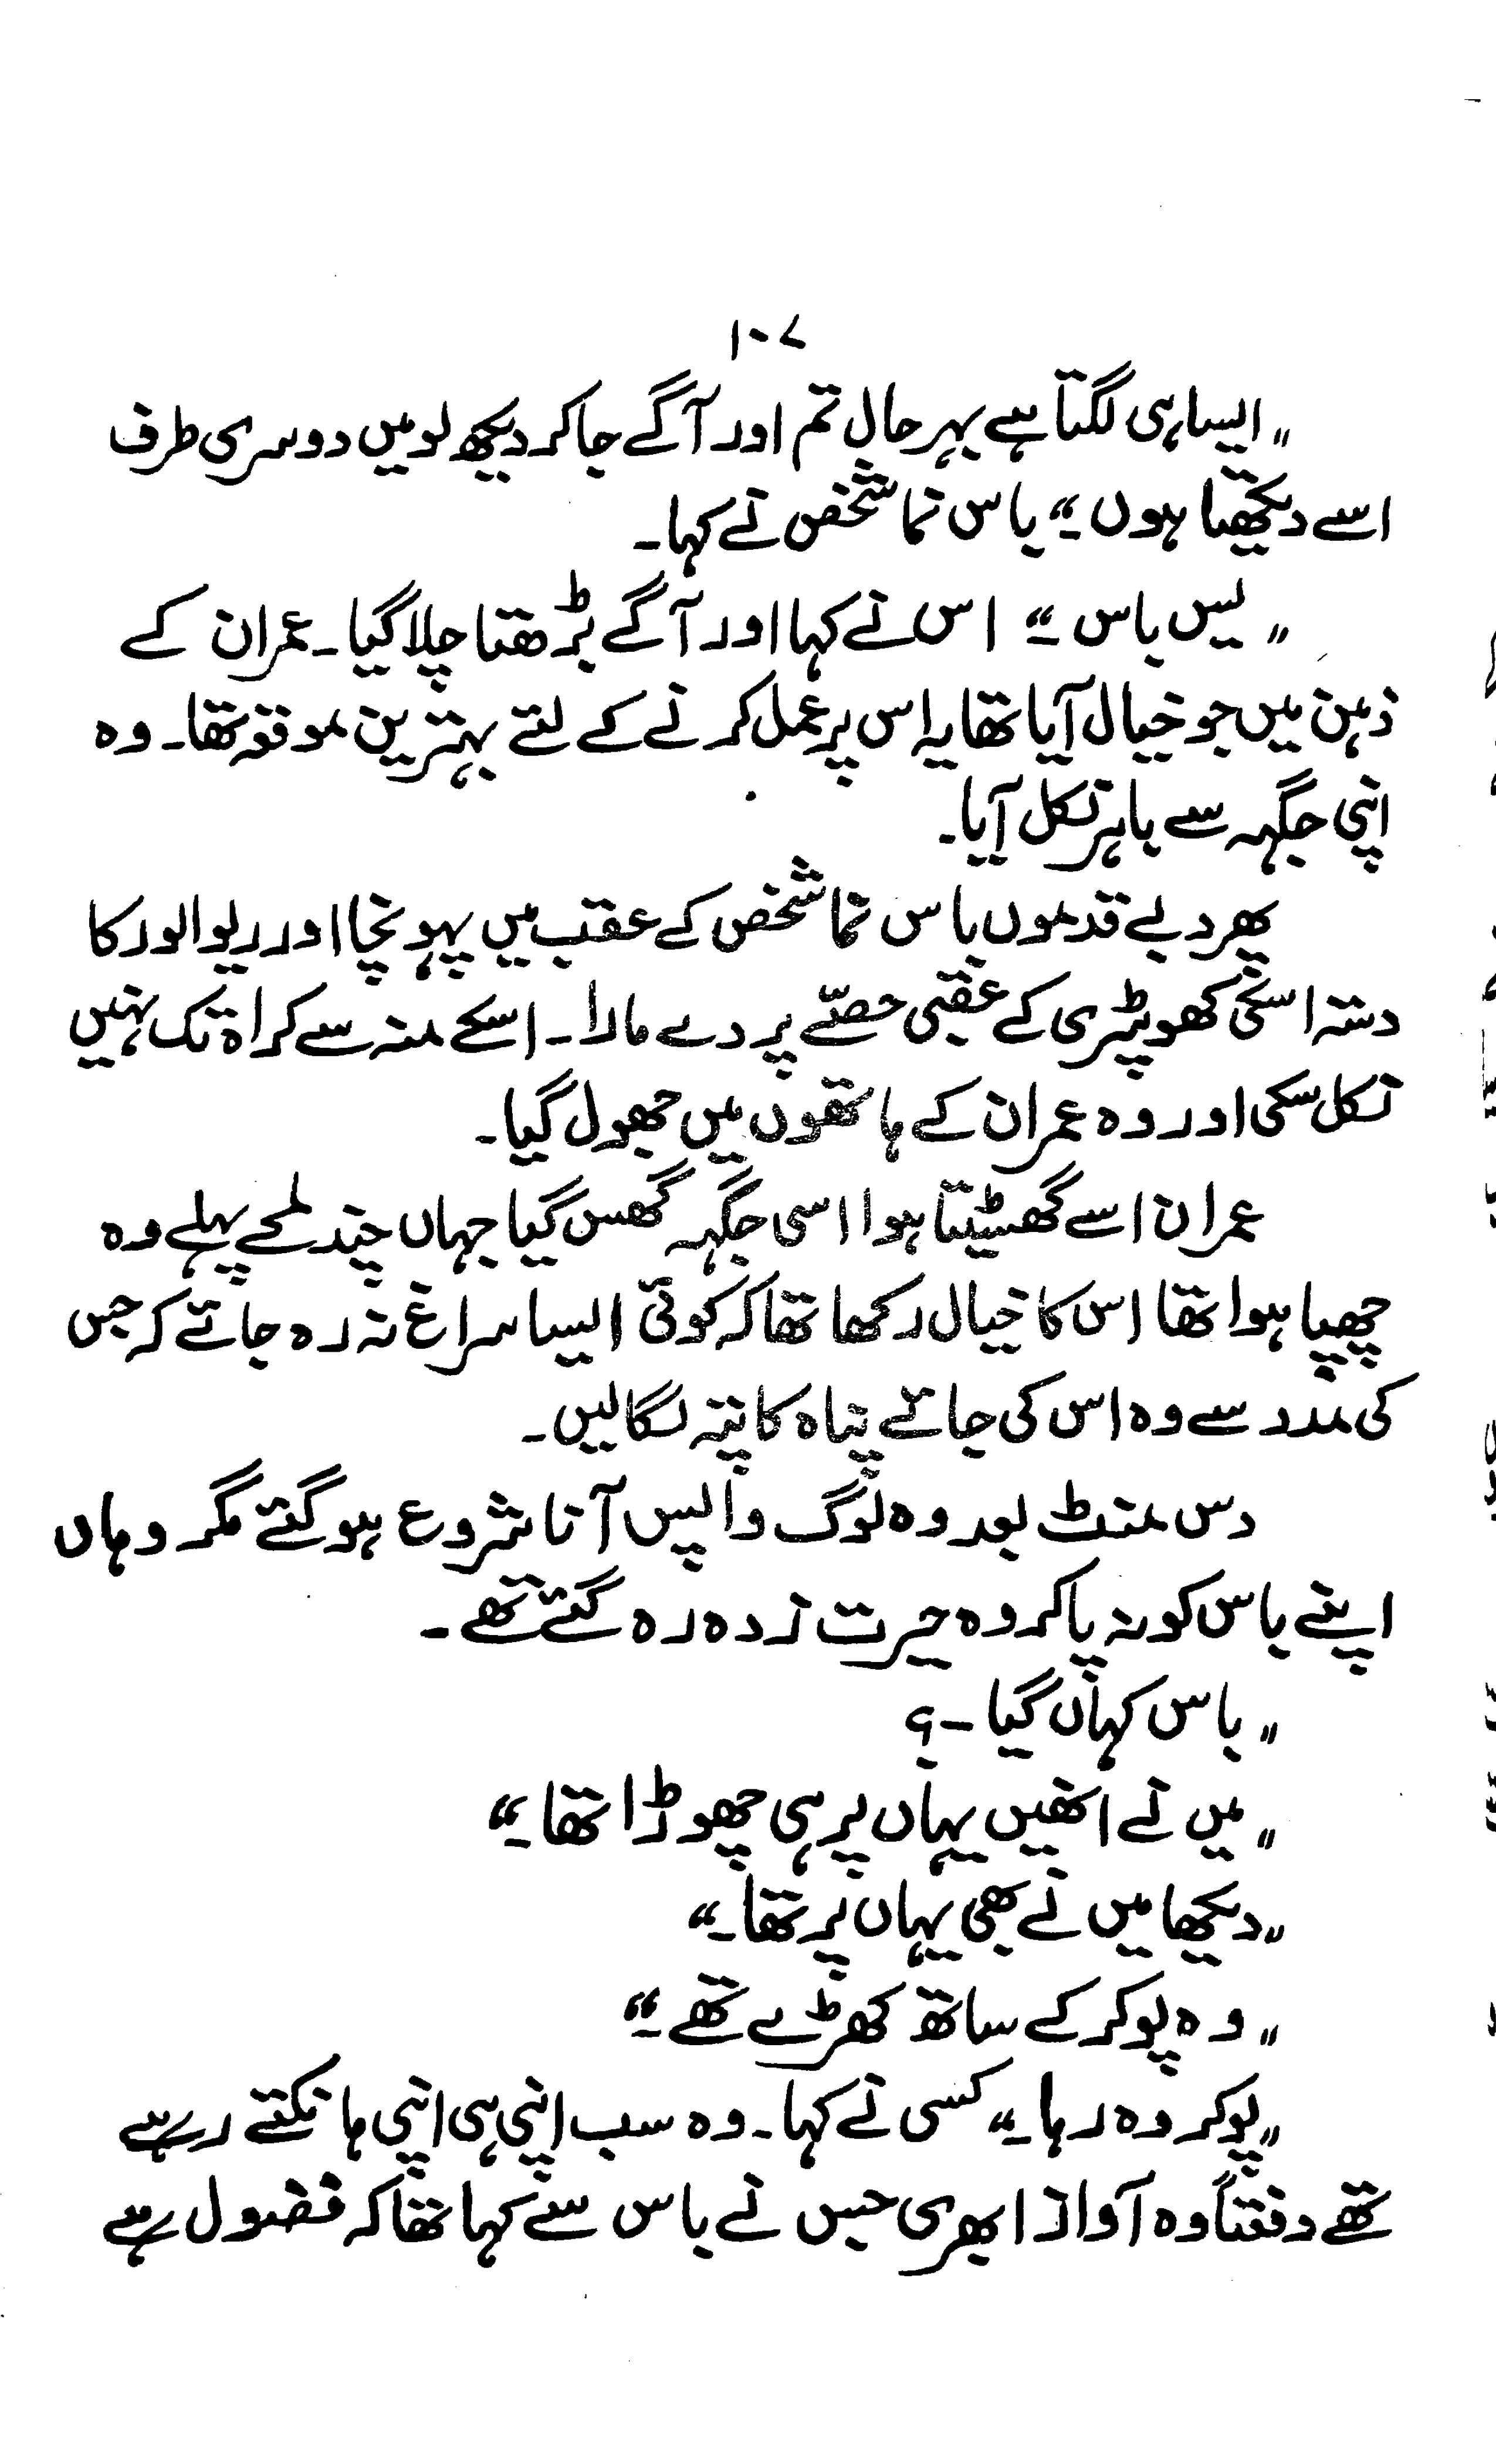 ۱۰۷
"ایسا ہی لگتا ہے بہر حال تم اور آگے جا کر دیکھ لو میں دوسری طرف
اسے دیکھتا ہوں۔" باس نما شخص نے کہا۔
"لیس باس۔" اس نے کہا اور آگے بڑھتا چلا گیا۔ عمران کے
ذہن میں جو خیال آیا تھا یہ اس پر عمل کرنے کے لئے بہترین موقع تھا۔ وہ
اپنی جگہہ سے باہر نکل آیا۔
پھر دبے قدموں باس نما شخص کے عقب میں پہونچا اور ریوالور کا
دستہ اسکی کھوپڑی کے عقبی حصّے پر دے مارا۔ اسکے منہ سے کراہ تک نہیں
نکل سکی اور وہ عمران کے ہاتھوں میں جھول گیا۔
عمران اسے گھسیٹتا ہوا اسی جگہہ گھس گیا جہاں چند لمحے پہلے وہ
چھپا ہوا تھا اس کا خیال رکھا تھا کہ کوئی ایسا سراغ نہ رہ جائے کہ جس
کی مدد سے وہ اس کی جائے پناہ کا پتہ لگا لیں۔
دس منٹ بعد وہ لوگ واپس آنا شروع ہو گئے مگر وہاں
اپنے باس کو نہ پا کر وہ حیرت زدہ رہ گئے تھے۔
"باس کہاں گیا۔؟
"میں نے انھیں یہاں پر ہی چھوڑا تھا۔"
"دیکھا میں نے بھی یہاں پر تھا۔"
"وہ پوکر کے ساتھ کھڑے تھے۔"
"پوکر وہ رہا۔" کسی نے کہا۔ وہ سب اپنی ہی اپنی ہانکتے رہے
تھے دفعتاً وہ آواز ابھری جس نے باس سے کہا تھا کہ فضول ہے